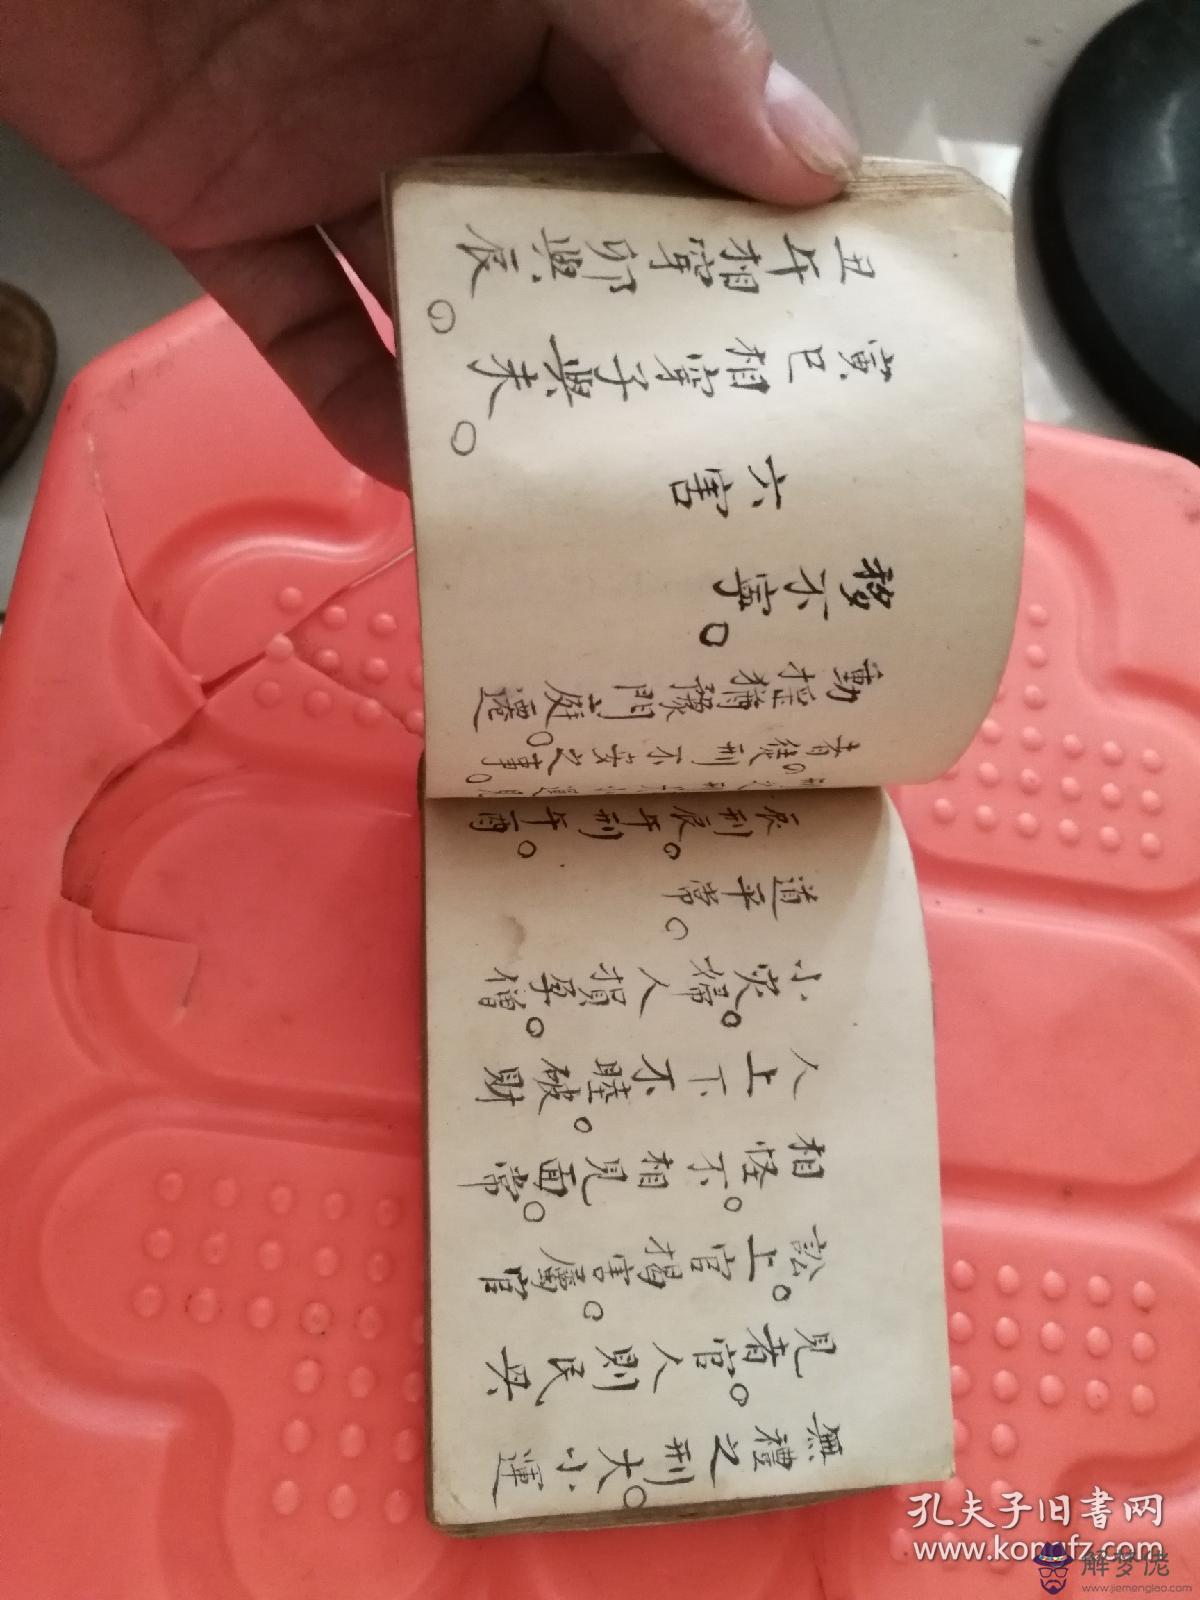 無禮之刑大小運
見者官人則民與
訟上官揭害屬官
相怪不相見面常
人上下不睦破財
小災婦人損孕僧
道平常
辰刑辰午刑午酉
者徒刑不安之事
動搖猶豫門庭遷
移不寧
六害
寅巳相穿子與未
丑午相穿卯與辰
孔夫子旧書网
www.kongfz.com
解梦佬
www.jiemenglao.com